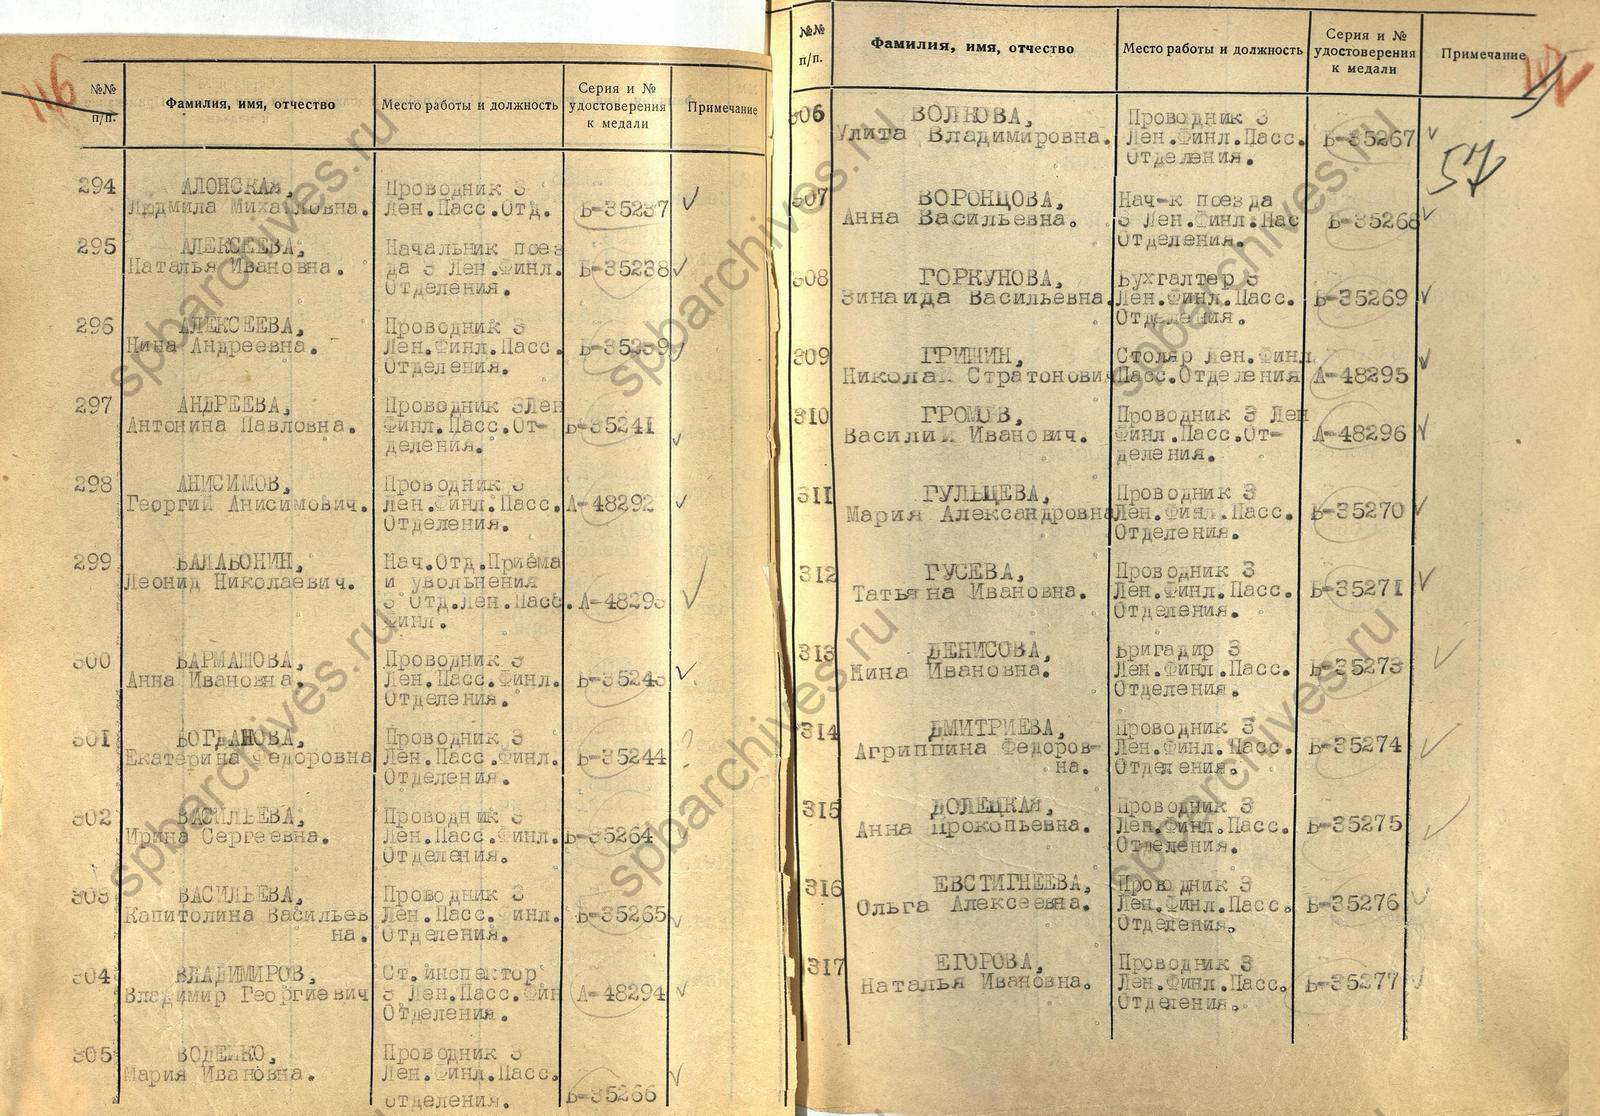 116
№№ п/п.
Фамилия, имя, отчество
Место работы и должность
Серия и № удостоверения к медали
Примечание
294 АЛОНСКАЯ, Проводник 3
Людмила Михайловна. Лен.Пасс.Отд. Б-35237
295 АЛЕКСЕЕВА, Начальник поез
Наталья Ивановна. да 3 Лен.Финл. Б-35238
Отделения.
296 АЛЕКСЕЕВА, Проводник 3
Нина Андреевна. Лен.Финл.Пасс. Б-35239
Отделения.
297 АНДРЕЕВА, Проводник 3Лен
Антонина Павловна. Финл.Пасс.От- Б-35241
деления.
298 АНИСИМОВ, Проводник 3
Георгий Анисимович. Лен.Финл.Пасс. А-48292
Отделения.
299 БАЛАБОНИН, Нач.Отд.Приема
Леонид Николаевич. и увольнения
3 Отд.Лен.Пасс. А-48293
Финл.
300 БАРМАШОВА, Проводник 3
Анна Ивановна. Лен.Пасс.Финл. Б-35243
Отделения.
301 БОГДАНОВА, Проводник 3
Екатерина Федоровна Лен.Пасс.Финл. Б-35244 ?
Отделения.
302 ВАСИЛЬЕВА, Проводник 3
Ирина Сергеевна. Лен.Пасс.Финл. Б-35264
Отделения.
303 ВАСИЛЬЕВА, Проводник 3
Капитолина Васильев Лен.Пасс.Финл. Б-35265
на. Отделения.
304 ВЛАДИМИРОВ, Ст.инспектор
Владимир Георгиевич 3 Лен.Пасс.Фин А-48294
Отделения.
305 ВОДЕЙКО, Проводник 3
Мария Ивановна. Лен.Финл.Пасс.
Отделения. Б-35266
№№ п/п.
Фамилия, имя, отчество
Место работы и должность
Серия и № удостоверения к медали
Примечание
57
306 ВОЛКОВА, Проводник 3
Улита Владимировна. Лен.Финл.Пасс. Б-35267
Отделения.
307 ВОРОНЦОВА, Нач-к поезда
Анна Васильевна. 3 Лен.Финл.Пас Б-35268
Отделения.
308 ГОРКУНОВА, Бухгалтер 3
Зинаида Васильевна. Лен.Финл.Пасс. Б-35269
Отделения.
309 ГРИШИН, Столяр Лен.Финл
Николай Стратонови Пасс.Отделения А-48295
310 ГРОМОВ, Проводник 3 Лен
Василий Иванович. Финл.Пасс.От- А-48296
деления.
311 ГУЛЬЦЕВА, Проводник 3
Мария Александровна Лен.Финл.Пасс. Б-35270
Отделения.
312 ГУСЕВА, Проводник 3
Татьяна Ивановна. Лен.Финл.Пасс. Б-35271
Отделения.
313 ДЕНИСОВА, Бригадир 3
Нина Ивановна. Лен.Финл.Пасс. Б-35273
Отделения.
314 ДМИТРИЕВА, Проводник 3
Агриппина Федоров- Лен.Финл.Пасс. Б-35274
на. Отделения.
315 ДОЛЕЦКАЯ, Проводник 3
Анна Прокопьевна. Лен.Финл.Пасс. Б-35275
Отделения.
316 ЕВСТИГНЕЕВА, Проводник 3
Ольга Алексеевна. Лен.Финл.Пасс. Б-35276
Отделения.
317 ЕГОРОВА, Проводник 3
Наталья Ивановна. Лен.Финл.Пасс. Б-35277
Отделения.
spbarchives.ru
spbarchives.ru
spbarchives.ru
spbarchives.ru
spbarchives.ru
spbarchives.ru